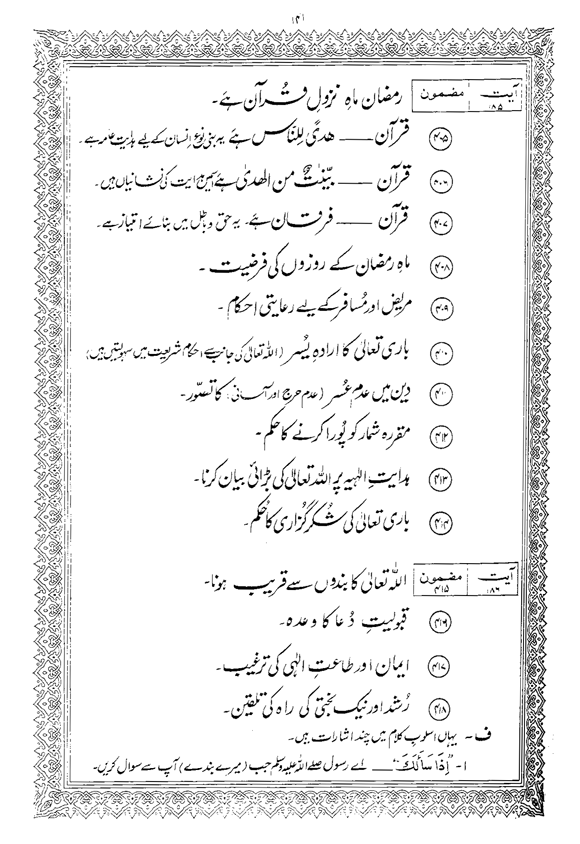 ۱۴۱
آیت ۱۸۵ مضمون رمضان ماہِ نزولِ قرآن ہے۔
۴۰۵ قرآن ــــ ھدًی للناس ہے یہ بنی نوع انسان کے لیے ہدایت عامہ ہے۔
۴۰۶ قرآن ــــ بیّنٰت من الھدٰی ہے اسمیں ہدایت کی نشانیاں ہیں۔
۴۰۷ قرآن ــــ فرقان ہے۔ یہ حق و باطل میں بنائے امتیاز ہے۔
۴۰۸ ماہِ رمضان کے روزوں کی فرضیت ۔
۴۰۹ مریض اور مُسافر کے لیے رعایتی احکام ۔
۴۱۰ باری تعالیٰ کا ارادہِ یُسر (اللہ تعالیٰ کی جانب سے احکامِ شریعت میں سہولتیں ہیں)
۴۱۰ دین میں عدمِ عُسر (عدمِ حرج اور آسانی) کا تصوّر ۔
۴۱۲ مقررہ شمار کو پُورا کرنے کا حکم ۔
۴۱۳ ہدایتِ الٰہیہ پر اللہ تعالیٰ کی بڑائی بیان کرنا۔
۴۱۴ باری تعالیٰ کی شکر گزاری کا حُکم۔
آیت ۱۸۶ مضمون ۴۱۵ اللہ تعالیٰ کا بندوں سے قریب ہونا۔
۴۱۶ قبولیتِ دُعا کا وعدہ۔
۴۱۷ ایمان اور طاعتِ الٰہی کی ترغیب۔
۴۱۸ رُشد اور نیک بختی کی راہ کی تلقین۔
ف ۔ یہاں اسلوبِ کلام میں چند اشارات ہیں۔
۱۔ "اِذَا سَاَلَکَ" ــــ اے رسول صلے اللہ علیہ وسلم جب (میرے بندے) آپ سے سوال کریں۔